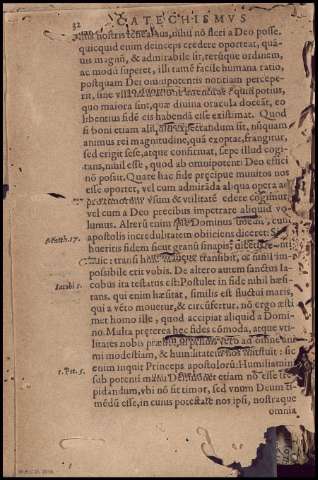 32
CATECHISMVS
nisi nostris teneamus, nihil nõ fieri a Deo posse.
quicquid enim deinceps credere oporteat, quã-
uis magnũ, & admirabile sit, rerũque ordinem,
ac modũ superet, illi tamẽ facile humana ratio,
postquam Dei omnipotentis notitiam percepe-
rit, sine vlla
quin potius,
quo maiora sint, quæ diuina oracula doceãt, eo
libentius fidẽ eis habendã esse existimat. Quod
si boni etiam alid expectandum sit, nũquam
animus rei magnitudine, quã exoptat, frangitur,
sed erigit sese, atque confirmat, sæpe illud cogi-
tans, nihil esse, quod ab omnipotenti Deo effici
nõ possit. Quare hac fide præcipue munitos nos
esse oportet, vel cum admirãda aliqua opera ad
proximorum vsum & vtilitatẽ edere cogimur,
vel cum a Deo precibus impetrare aliquid vo-
lumus. Alterũ enim ipse Dominus docuit, cum
apostolis incredulitatem obiiciens diceret: Si
Matth. 17.
hueritis fidem sicut granũ sinapis, dicetis mõti
huic: transi hinc illuc, & transibit, & nihil im-
possibile erit vobis. De altero autem sanctus Ia-
Iacobi 1.
cobus ita testatus est: Postulet in fide nihil hæsi-
tans. qui enim hæsitat, similis est fluctui maris,
qui a vẽto mouetur, & circũfertur. nõ ergo æsti
met homo ille, quod accipiat aliquid a Domi-
no. Multa præterea hæc fides cõmoda, atque vti-
litates nobis præbet, vero ad omnẽ ani
mi modestiam, & humilitatẽ nos instituit: sic
1. Pet. 5.
enim inquit Princeps apostolorũ: Humiliamini
sub potenti manu Dei. monet etiam nõ esse
pidandum, vbi nõ sit timor, sed vnum Deum ti-
mẽdũ esse, in cuius potestate nos ipsi, nostraque
omnia